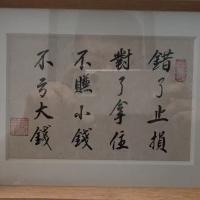 錯了止損
對了拿住
不賺小錢
不亏大錢